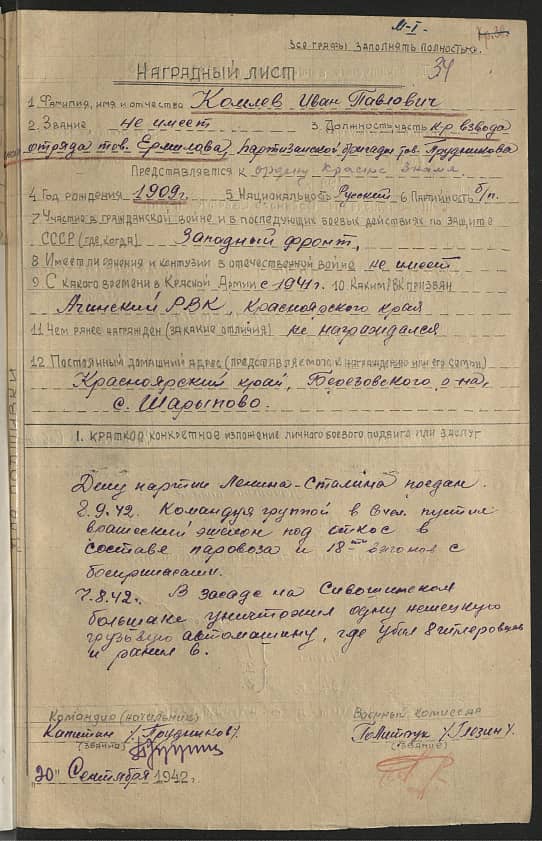 М-I.
Все графы заполнять полностью.
34
Наградный лист
1. Фамилия, имя и отчество Комлев Иван Павлович
2. Звание не имеет 3. Должность, часть к-р взвода
отряда тов. Ермилова, партизанской бригады тов. Прудникова
Представляется к ордену Красное Знамя.
4. Год рождения 1909г. 5. Национальность Русский 6. Партийность б/п.
7. Участие в гражданской войне и в последующих боевых действиях по защите
СССР (где, когда) Западный фронт.
8. Имеет ли ранения и контузии в отечественной войне не имеет
9. С какого времени в Красной Армии с 1941г. 10. Каким РВК призван
Ачинский РВК, Красноярского края
11. Чем ранее награжден (за какие отличия) не награждался
12. Постоянный домашний адрес (представляемого к награждению или его семьи)
Красноярский край, Березовского р-на,
с. Шарыпово.
I. Краткое конкретное изложение личного боевого подвига или заслуг
Делу партии Ленина-Сталина предан.
2.9.42. Командуя группой в 6 чел. пустил
вражеский эшелон под откос в
составе паровоза и 18-ти вагонов с
боеприпасами.
7.8.42г. В засаде на Сивошинском
большаке уничтожил одну немецкую
грузовую автомашину, где убил 8 гитлеровцев
и ранил 6.
Командир (начальник)
Военный комиссар
Капитан /Прудников/.
Политрук /Глезин/.
(звание)
(звание)
"20" Сентября 1942г.